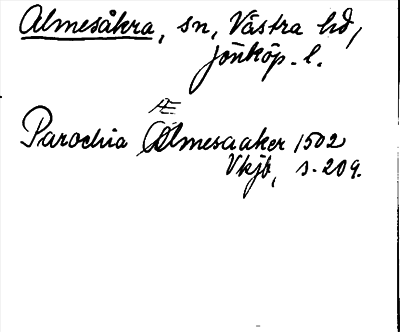 Almesåkra, sn, Västra hd,
Jönköp. l.
Æ
Parochia Ølmesaaker 1502
Vkjb, s. 209.